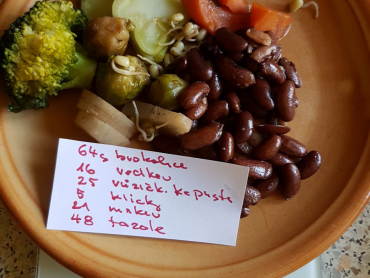 64g brokolice
16 ředkev
25 růžičk. kapusta
5 klíčky
21 mrkev
48 fazole